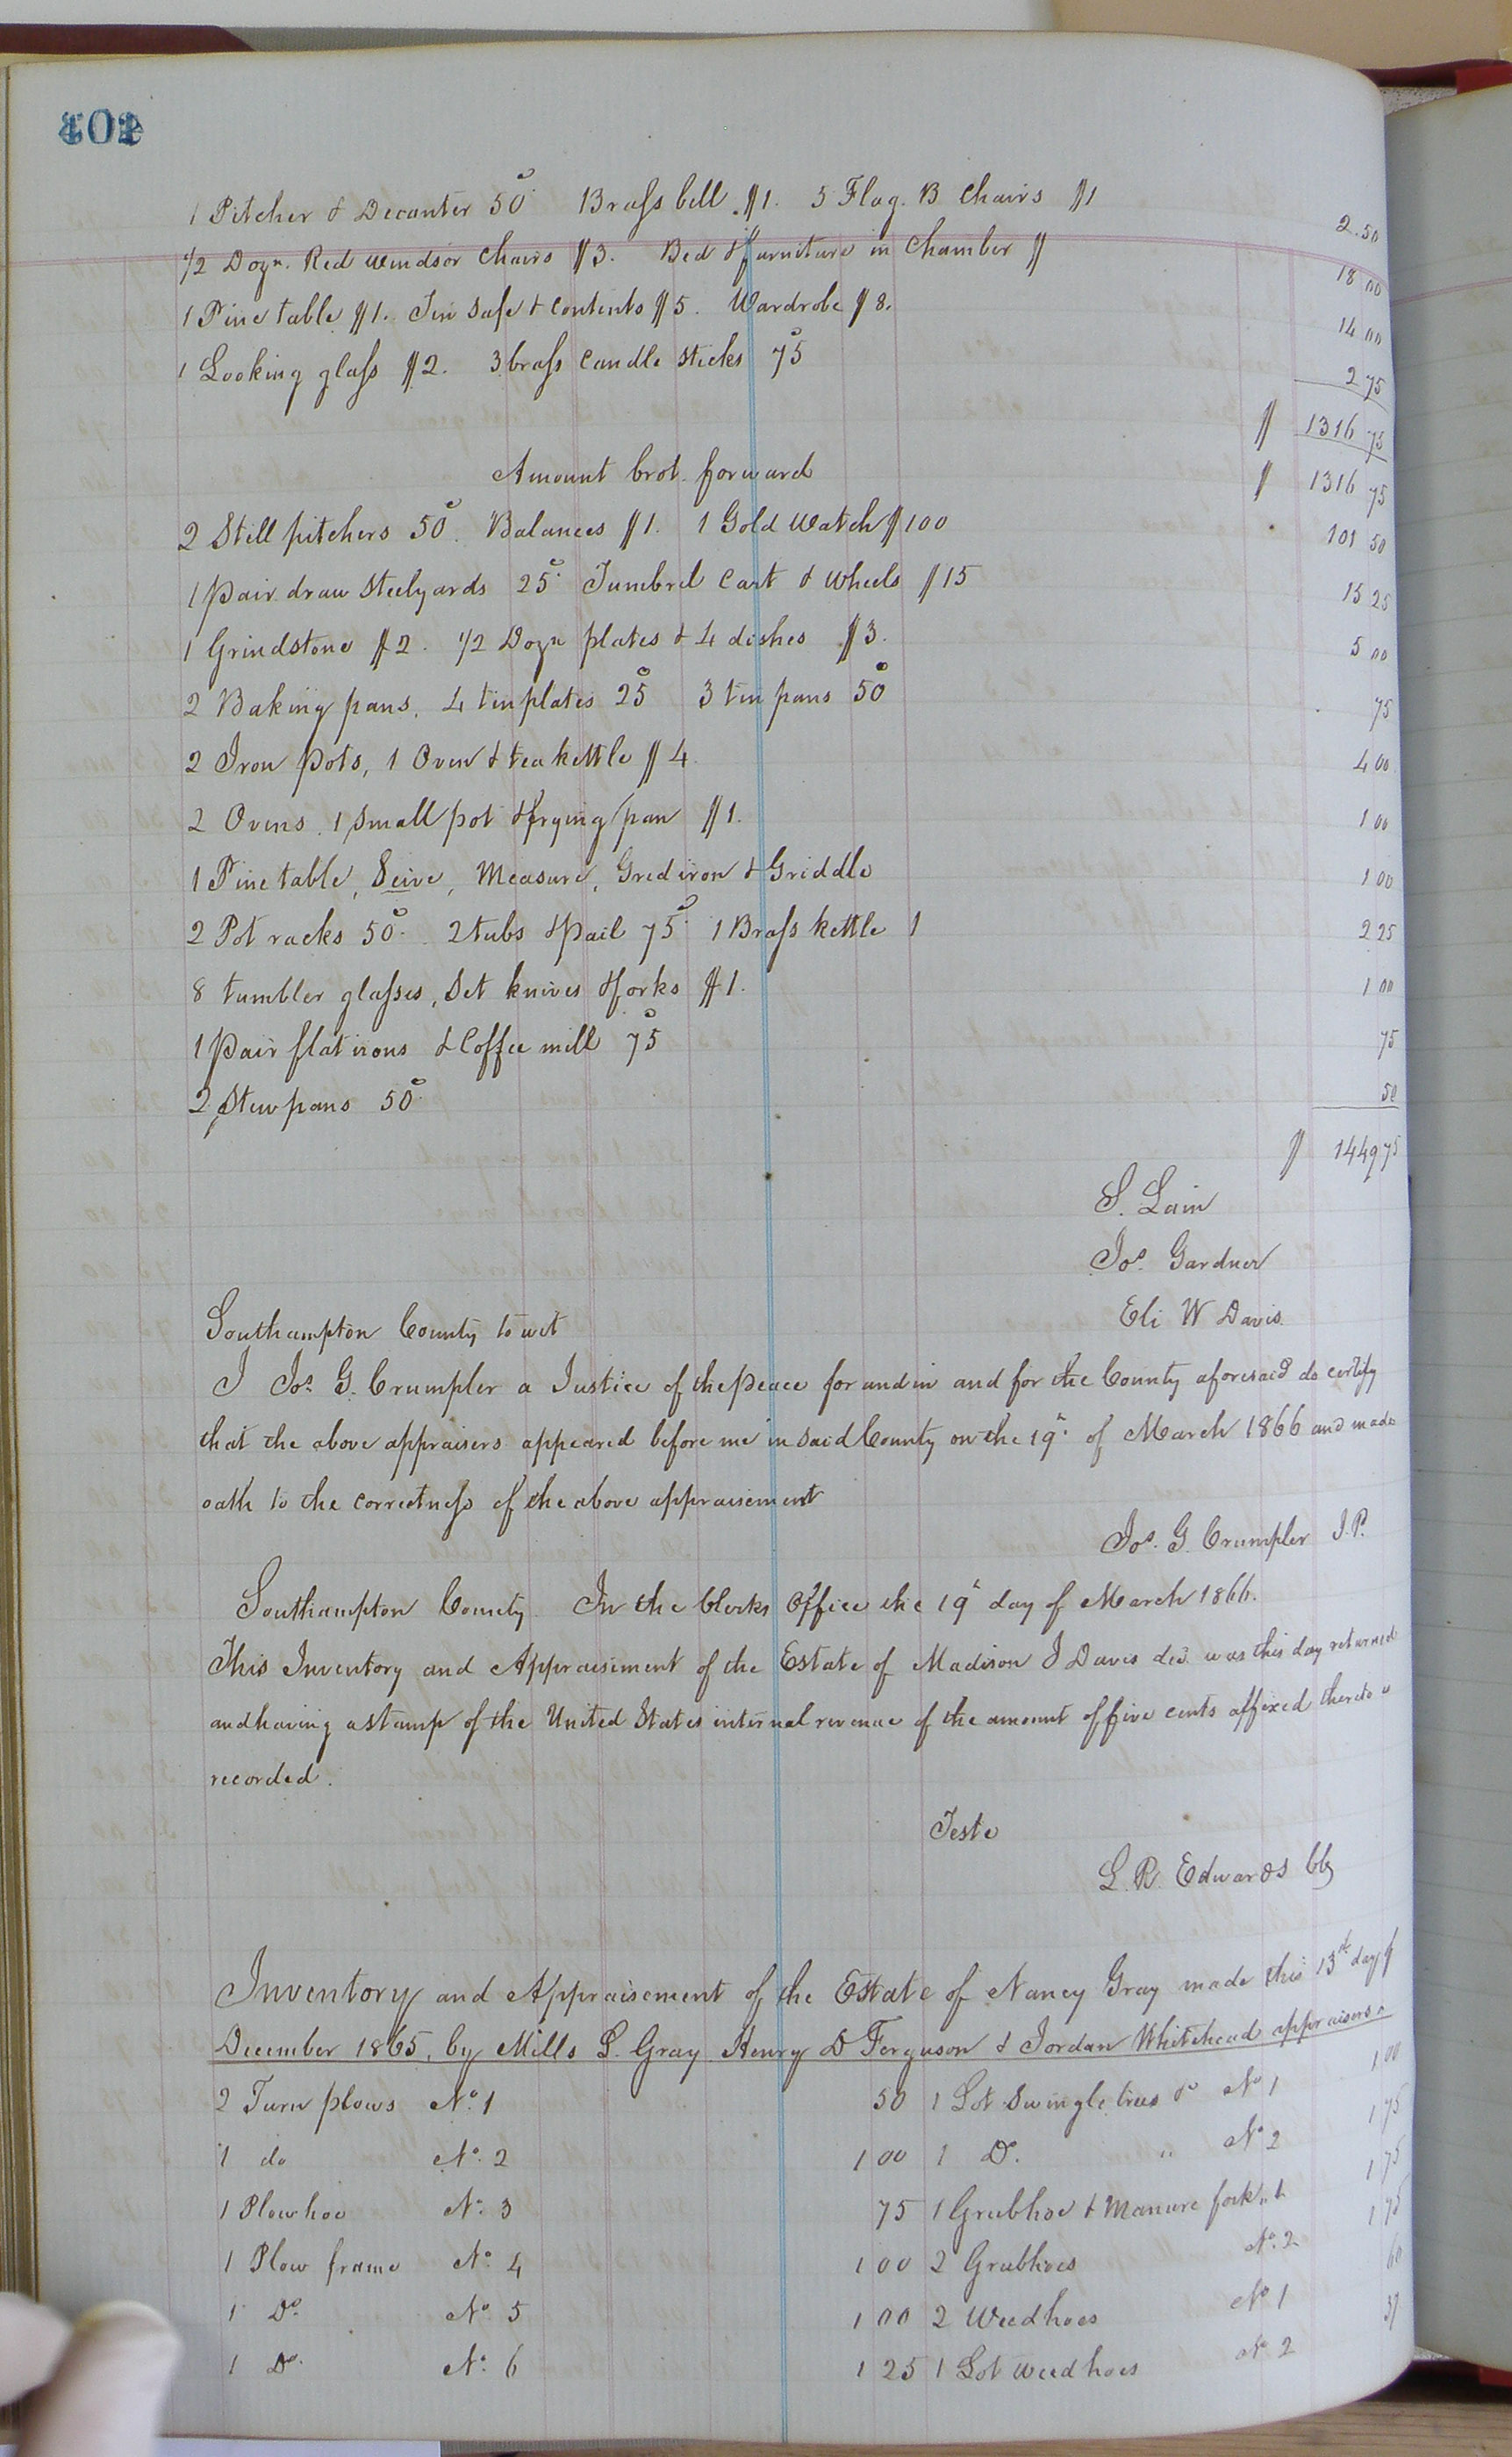 402
1 Pitcher & Decanter 50c. Brass bell $1. 5 Flag. B Chairs $1 2.50
1/2 Dozn. Red Windsor Chairs $3. Bed & furniture in Chamber $ 18 00
1 Pine table $1. Tin Safe & Contents $5. Wardrobe $8. 14 00
1 Looking glass $2. 3 brass Candle Sticks 75c 2 75
$ 1316 75
Amount brot. forward $ 1316 75
2 Still pitchers 50c. Balances $1. 1 Gold Watch $100 101 50
1 Pair draw Steelyards 25c. Tumbrel Cart & Wheels $15 15 25
1 Grindstone $2. 1/2 Dozn plates & 4 dishes $3. 5 00
2 Baking pans, 4 tin plates 25c 3 tin pans 50c 75
2 Iron Pots, 1 Oven & tea kettle $4 4 00
2 Ovens, 1 Small pot & frying pan $1. 1 00
1 Pine table, Seive, Measure, Gred iron & Griddle 1 00
2 Pot racks 50c. 2 tubs & Pail 75c. 1 Brass kettle 1 2 25
8 tumbler glasses, Set knives & forks $1. 1 00
1 Pair flat irons & Coffee mill 75c 75
2 Stew pans 50c. 50
$ 1449 75
S. Lain
Jos. Gardner
Eli W Davis.
Southampton County to wit
I Jos. G. Crumpler a Justice of the Peace for and in and for the County aforesaid do certify
that the above appraisers appeared before me in Said County on the 19th of March 1866 and made
oath to the correctness of the above appraisement
Jos. G. Crumpler J.P.
Southampton County In the Clerks Office the 19th day of March 1866.
This Inventory and Appraisement of the Estate of Madison J Davis decd. was this day returned
and having a stamp of the United States internal revenue of the amount of five cents affixed thereto is
recorded.
Teste
L. R. Edwards Clk
Inventory and Appraisement of the Estate of Nancy Gray made this 13th day of
December 1865, by Mills L. Gray Henry D Ferguson & Jordan Whitehead appraisers.
2 Turn plows No. 1 50 1 Lot Swingle trees &c No 1 1 00
1 do No. 2 1 00 1 Do. " No 2 1 75
1 Plow hoe No. 3 75 1 Grubhoe & Manure fork " 1 1 75
1 Plow frame No. 4 1 00 2 Grubhoes No. 2 1 75
1 Do. No. 5 1 00 2 Weedhoes No 1 60
1 Do. No. 6 1 25 1 Lot weedhoes No 2 37